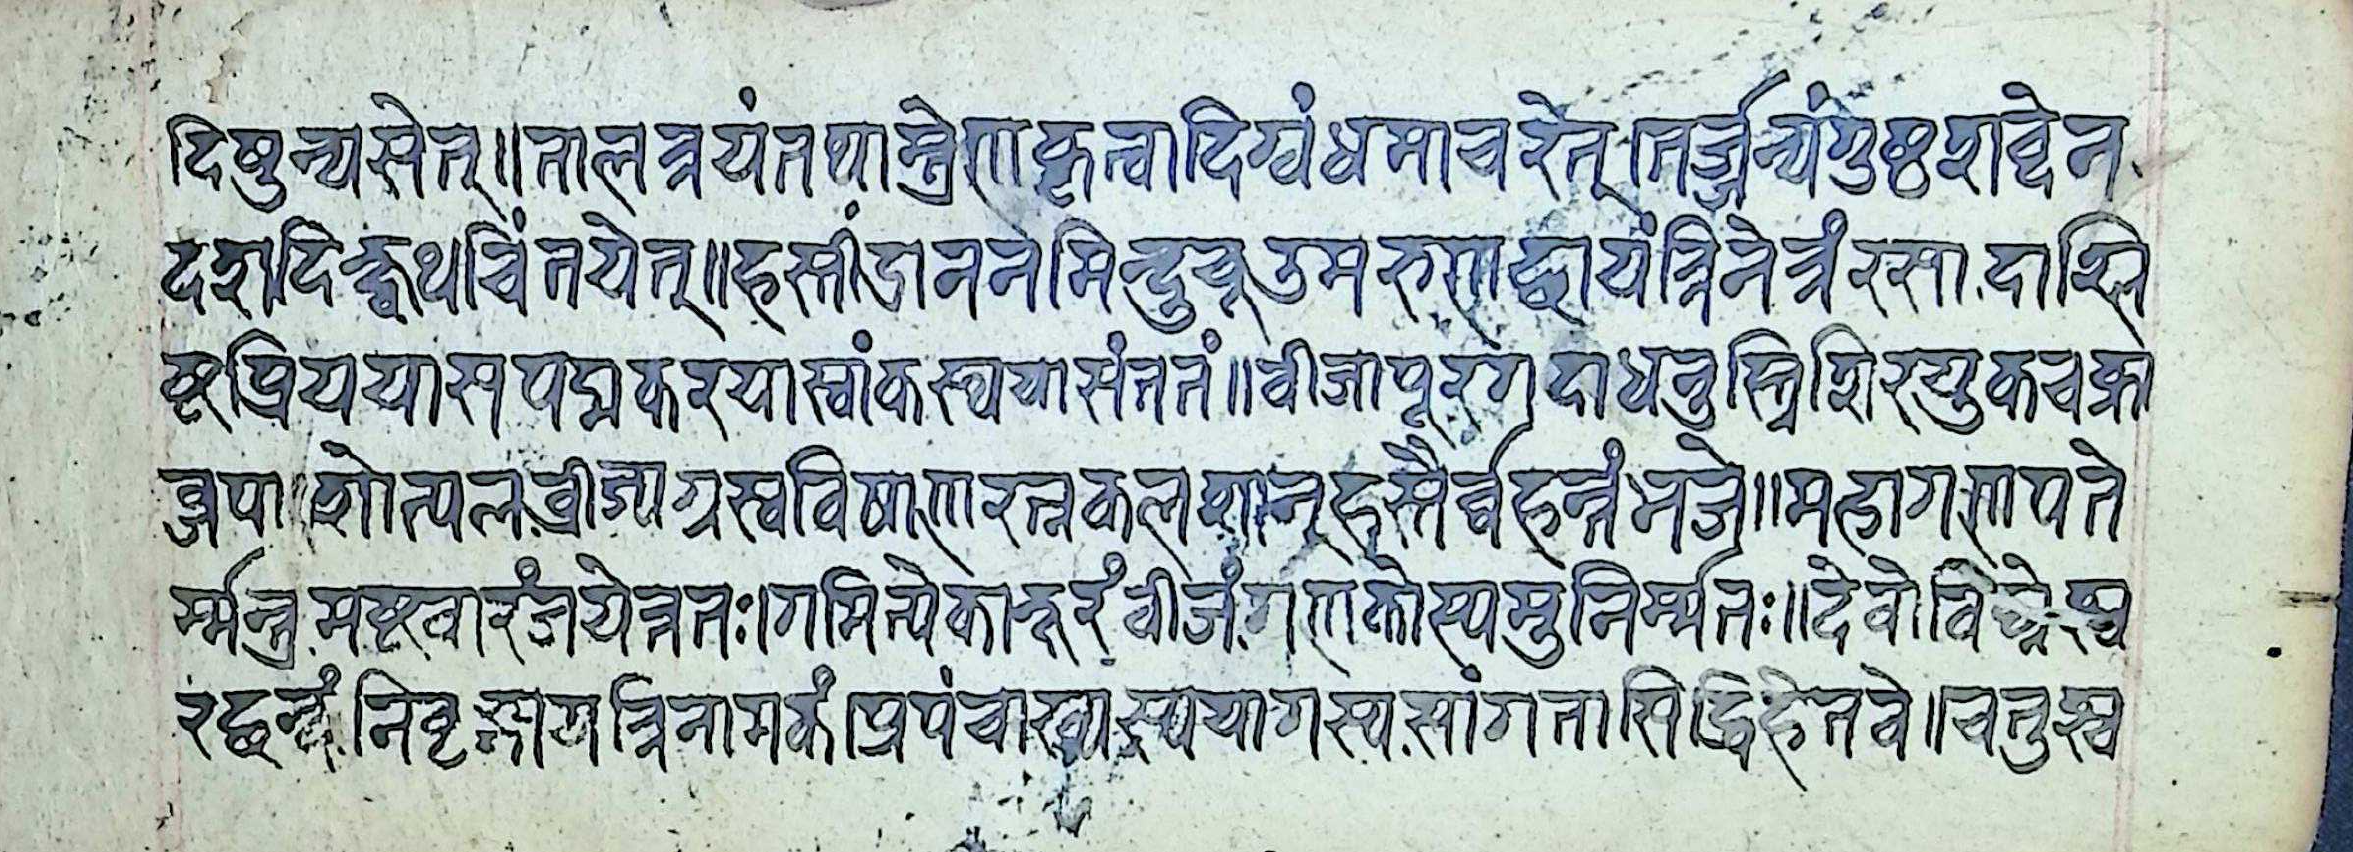 दिषुन्यसेत्॥तालत्रयंतथास्त्रेणकृत्वादिग्वंधमाचरेत्।तर्ज्जन्यंगुष्ठशब्देन
दशदिक्ष्वथचिंतयेत्॥हस्तींद्राननमिन्दुचूडमरुणच्छायंत्रिनेत्रंरसादाश्लि
ष्टप्रिययासपद्मकरयास्वांकस्थयासंततं॥वीजापूरगदाधनुस्त्रिशिरयुकचक्रा
व्जपाशोत्पलव्रीह्यग्रस्वविषाणरत्नकलशान्हस्तैर्व्वहन्तंभजे॥महागणपते
र्म्मन्त्रमष्टवारंजपेत्ततः।गमित्येकाक्षरंवीजंगणकोस्यमुनिर्म्मतः॥देवोविघ्नेश्व
रछन्दंनिवृद्गायत्रिनामकं।प्रपंचाख्यास्ययागस्यसांगतासिद्धिहेतवे॥चतुश्च